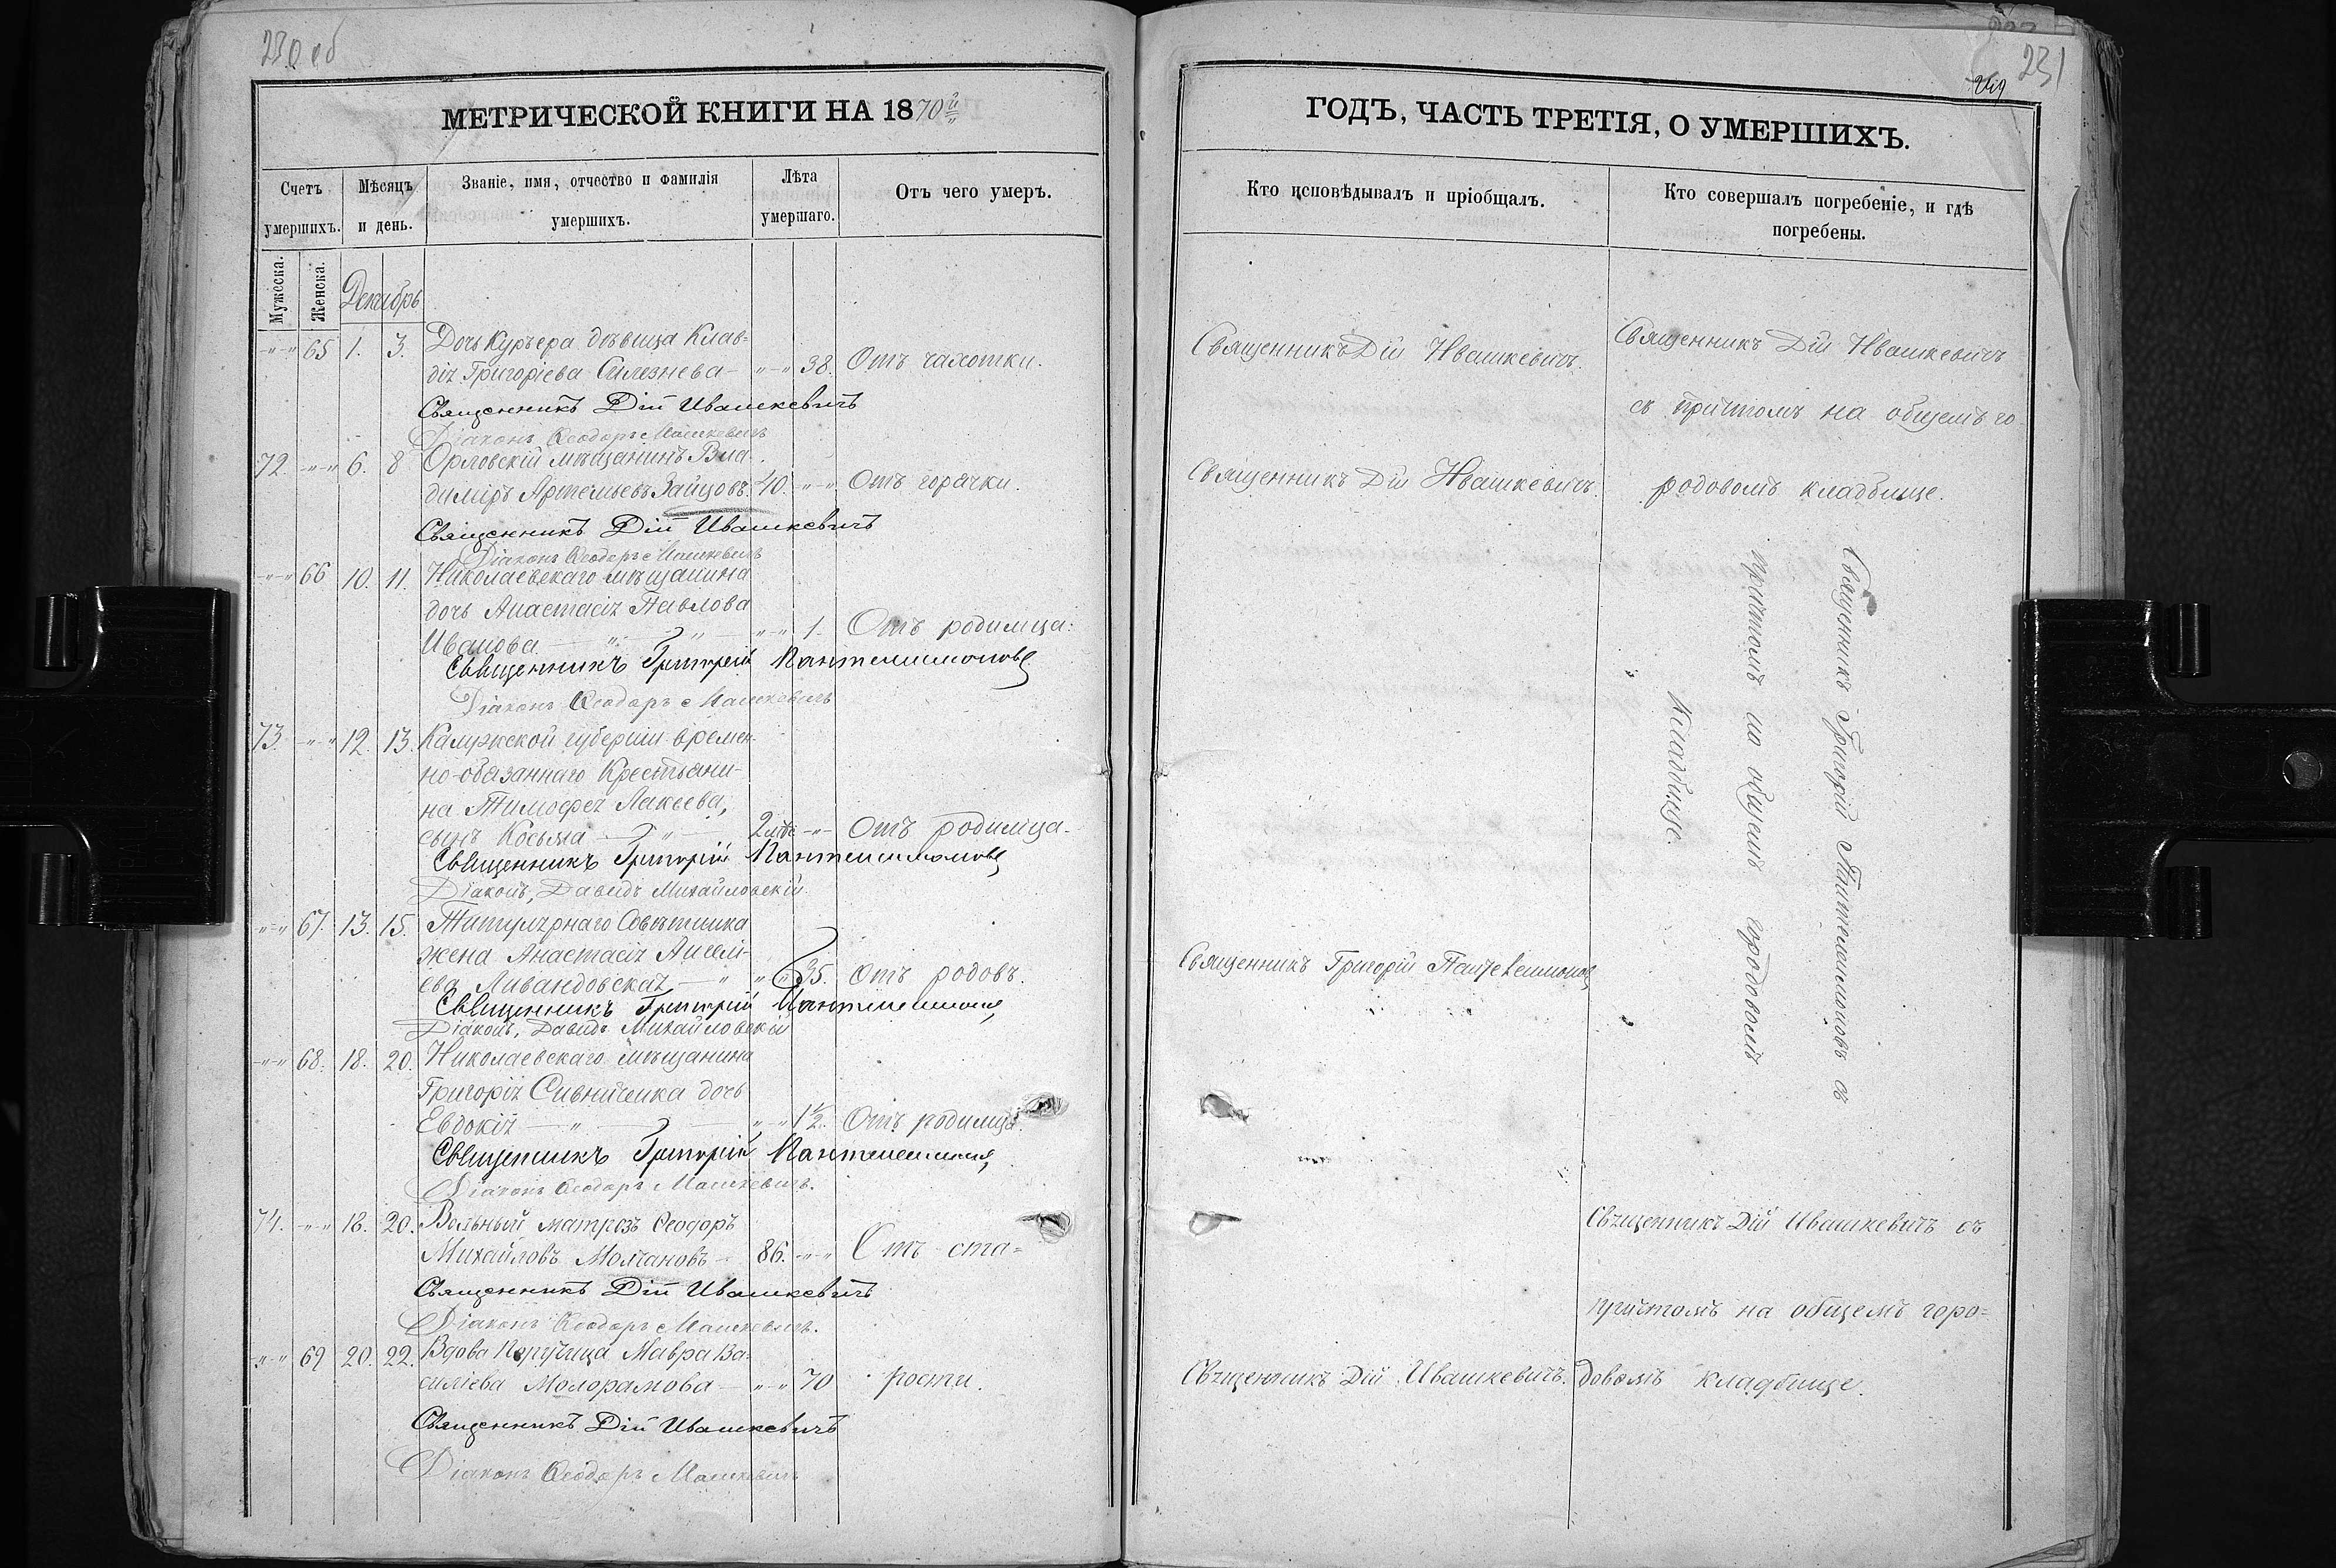 230 об
МЕТРИЧЕСКОЙ КНИГИ НА 1870й
Счетъ умершихъ.
Мѣсяцъ и день.
Званіе, имя, отчество и фамилія умершихъ.
Лѣта умершаго.
Отъ чего умеръ.
Мужеска.
Женска.
Декабрь
65 1. 3. Дочь Курьера дѣвица Клав-
дія Григоріева Силезнева 38. Отъ чахотки.
Священникъ Дій Ивашкевичъ
Діаконъ Ѳеодоръ Машкевичъ
72. 6. 8 Орловскій мѣщанинъ Вла-
диміръ Артемьевъ Зайцовъ. 40. Отъ горячки.
Священникъ Дій Ивашкевичъ
Діаконъ Ѳеодоръ Машкевичъ
66 10. 11. Николаевскаго мѣщанина
дочь Анастасія Павлова
Иванова 1. Отъ родимца.
Священникъ Григорій Пантелеимоновъ
Діаконъ Ѳеодоръ Машкевичъ
73. 12. 13. Калужской губерніи времен-
но-обязаннаго Крестьяни-
на Тимофея Лакеева,
сынъ Косьма 2 Отъ родимца.
Священникъ Григорій Пантелеимоновъ
Діаконъ, Давидъ Михайловскій
67. 13. 15. Титулярнаго Совѣтника
жена Анастасія
ева Ливандовская 35. Отъ родовъ.
Священникъ Григорій Пантелеимоновъ
Діаконъ, Давидъ Михайловскій
68. 18. 20. Николаевскаго мѣщанина
Григорія дочь
Евдокія 1½. Отъ родимца.
Священникъ Григорій Пантелеимоновъ
Діаконъ Ѳеодоръ Машкевичъ.
74. 18. 20. Вольный матрозъ Ѳеодоръ
Михайловъ Молчановъ 86. Отъ ста-
Священникъ Дій Ивашкевичъ
Діаконъ Ѳеодоръ Машкевичъ.
69 20. 22. Вдова Мавра Ва-
силіева 70 рости.
Священникъ Дій Ивашкевичъ
Діаконъ Ѳеодоръ Машкевичъ
231
ГОДЪ, ЧАСТЬ ТРЕТІЯ, О УМЕРШИХЪ.
Кто исповѣдывалъ и пріобщалъ.
Кто совершалъ погребеніе, и гдѣ погребены.
Священникъ Дій Ивашкевичъ.
Священникъ Дій Ивашкевичъ
съ причтомъ на общемъ го-
Священникъ Дій Ивашкевичъ.
родовомъ кладбище.
Священникъ Григорій Пантелеимоновъ съ
причтомъ на общемъ городовомъ
кладбище.
Священникъ Григорій Пантелеимоновъ
Священникъ Дій Ивашкевичъ съ
причтомъ на общемъ горо-
Священникъ Дій Ивашкевичъ.
довомъ кладбище.